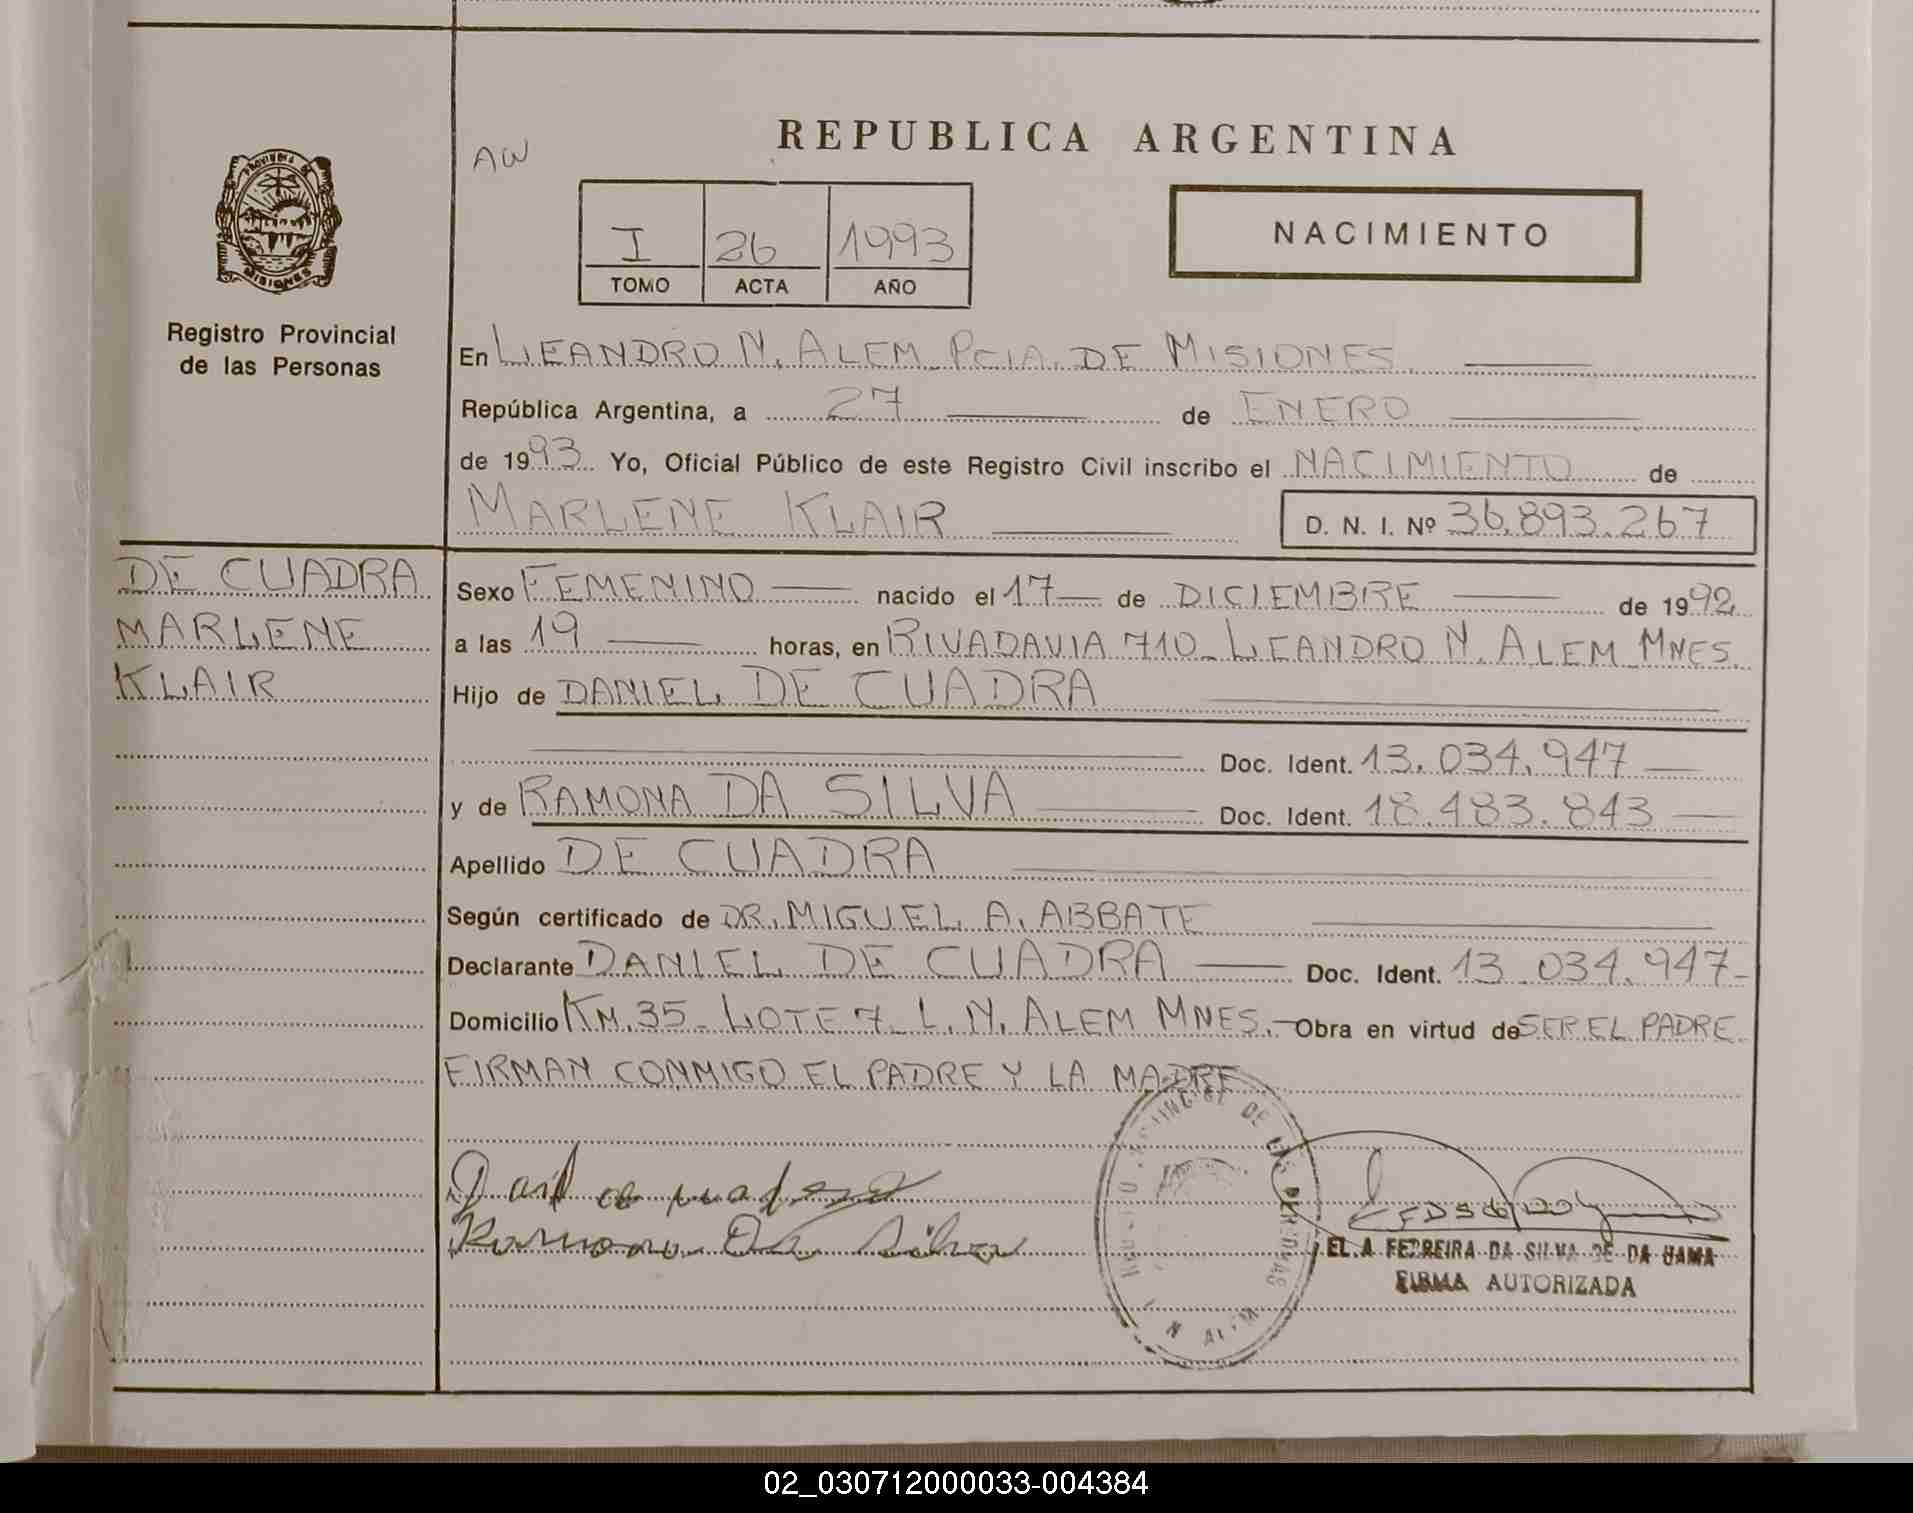 REPUBLICA ARGENTINA
AW
PROVINCIA DE
MISIONES
I 26 1993
TOMO ACTA AÑO
NACIMIENTO
Registro Provincial
de las Personas
En LEANDRO N. ALEM PCIA. DE MISIONES
República Argentina, a 27 de ENERO
de 1993 Yo, Oficial Público de este Registro Civil inscribo el NACIMIENTO de
MARLENE KLAIR D. N. I. Nº 36.893.267
DE CUADRA
MARLENE
KLAIR
Sexo FEMENINO nacido el 17 de DICIEMBRE de 1992
a las 19 horas, en RIVADAVIA 710 - LEANDRO N. ALEM MNES.
Hijo de DANIEL DE CUADRA
Doc. Ident. 13.034.947
y de RAMONA DA SILVA Doc. Ident. 18.483.843
Apellido DE CUADRA
Según certificado de DR. MIGUEL A. ABBATE
Declarante DANIEL DE CUADRA Doc. Ident. 13.034.947-
Domicilio KM. 35 - LOTE 7 - L. N. ALEM MNES. - Obra en virtud de SER EL PADRE
FIRMAN CONMIGO EL PADRE Y LA MADRE
Ramona Da Silva
DE LAS PERSONAS
N ALEM
FERREIRA DA SILVA DE DA
FIRMA AUTORIZADA
02_030712000033-004384